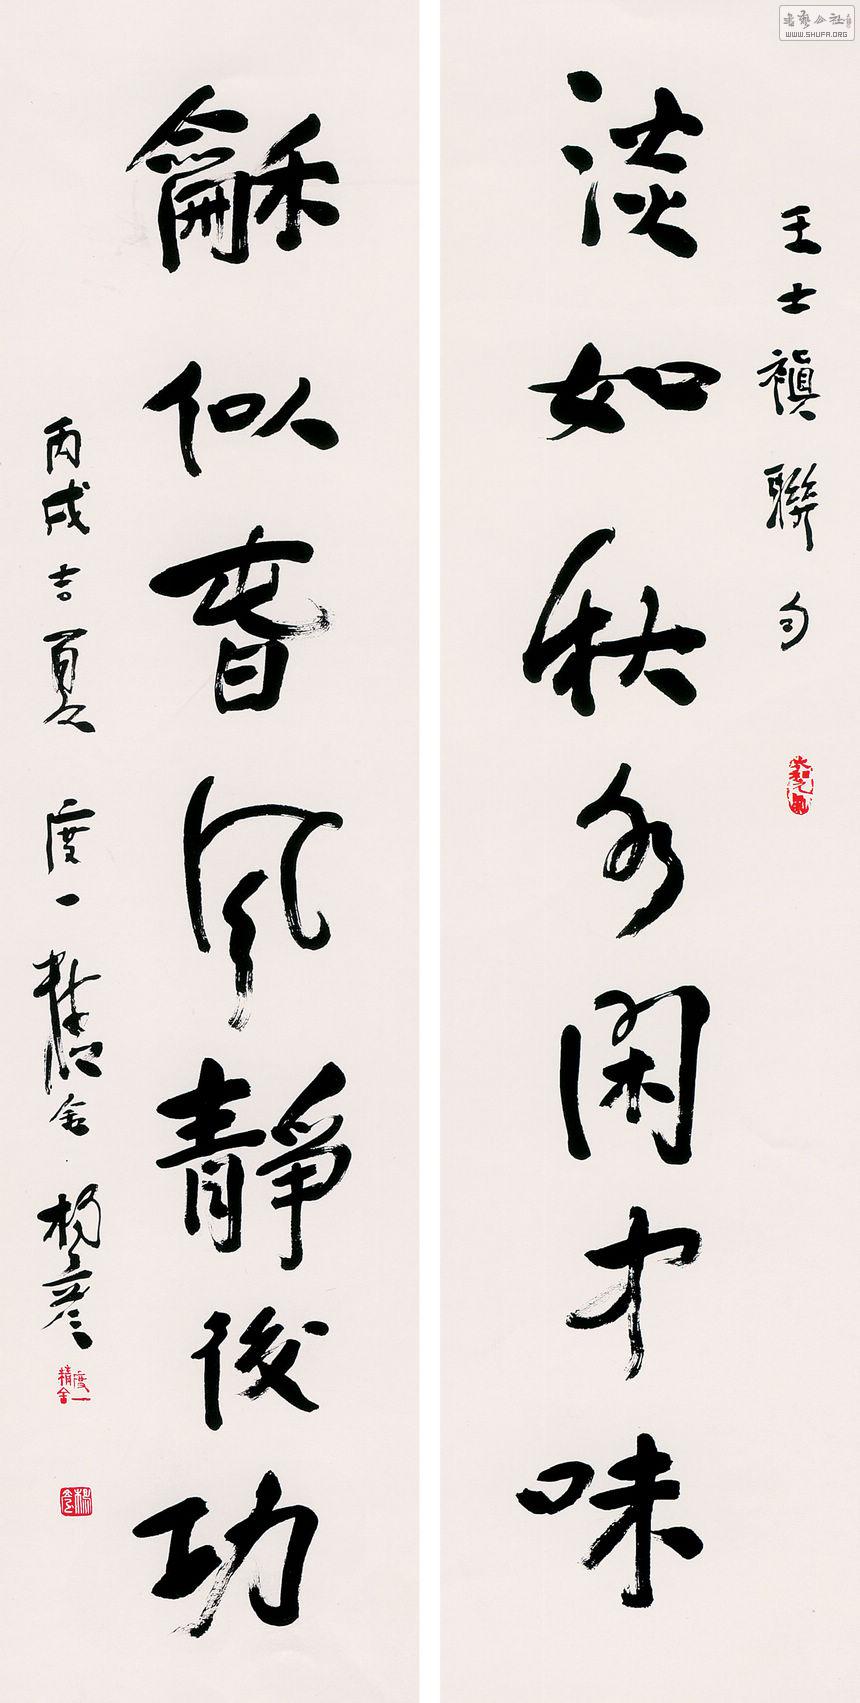 王士禛聯句
淡如秋水閑中味
龢似旾風靜後功
丙戌吉夏 度一精舍 楊彥
度一精舍
书艺公社
WWW.SHUFA.ORG